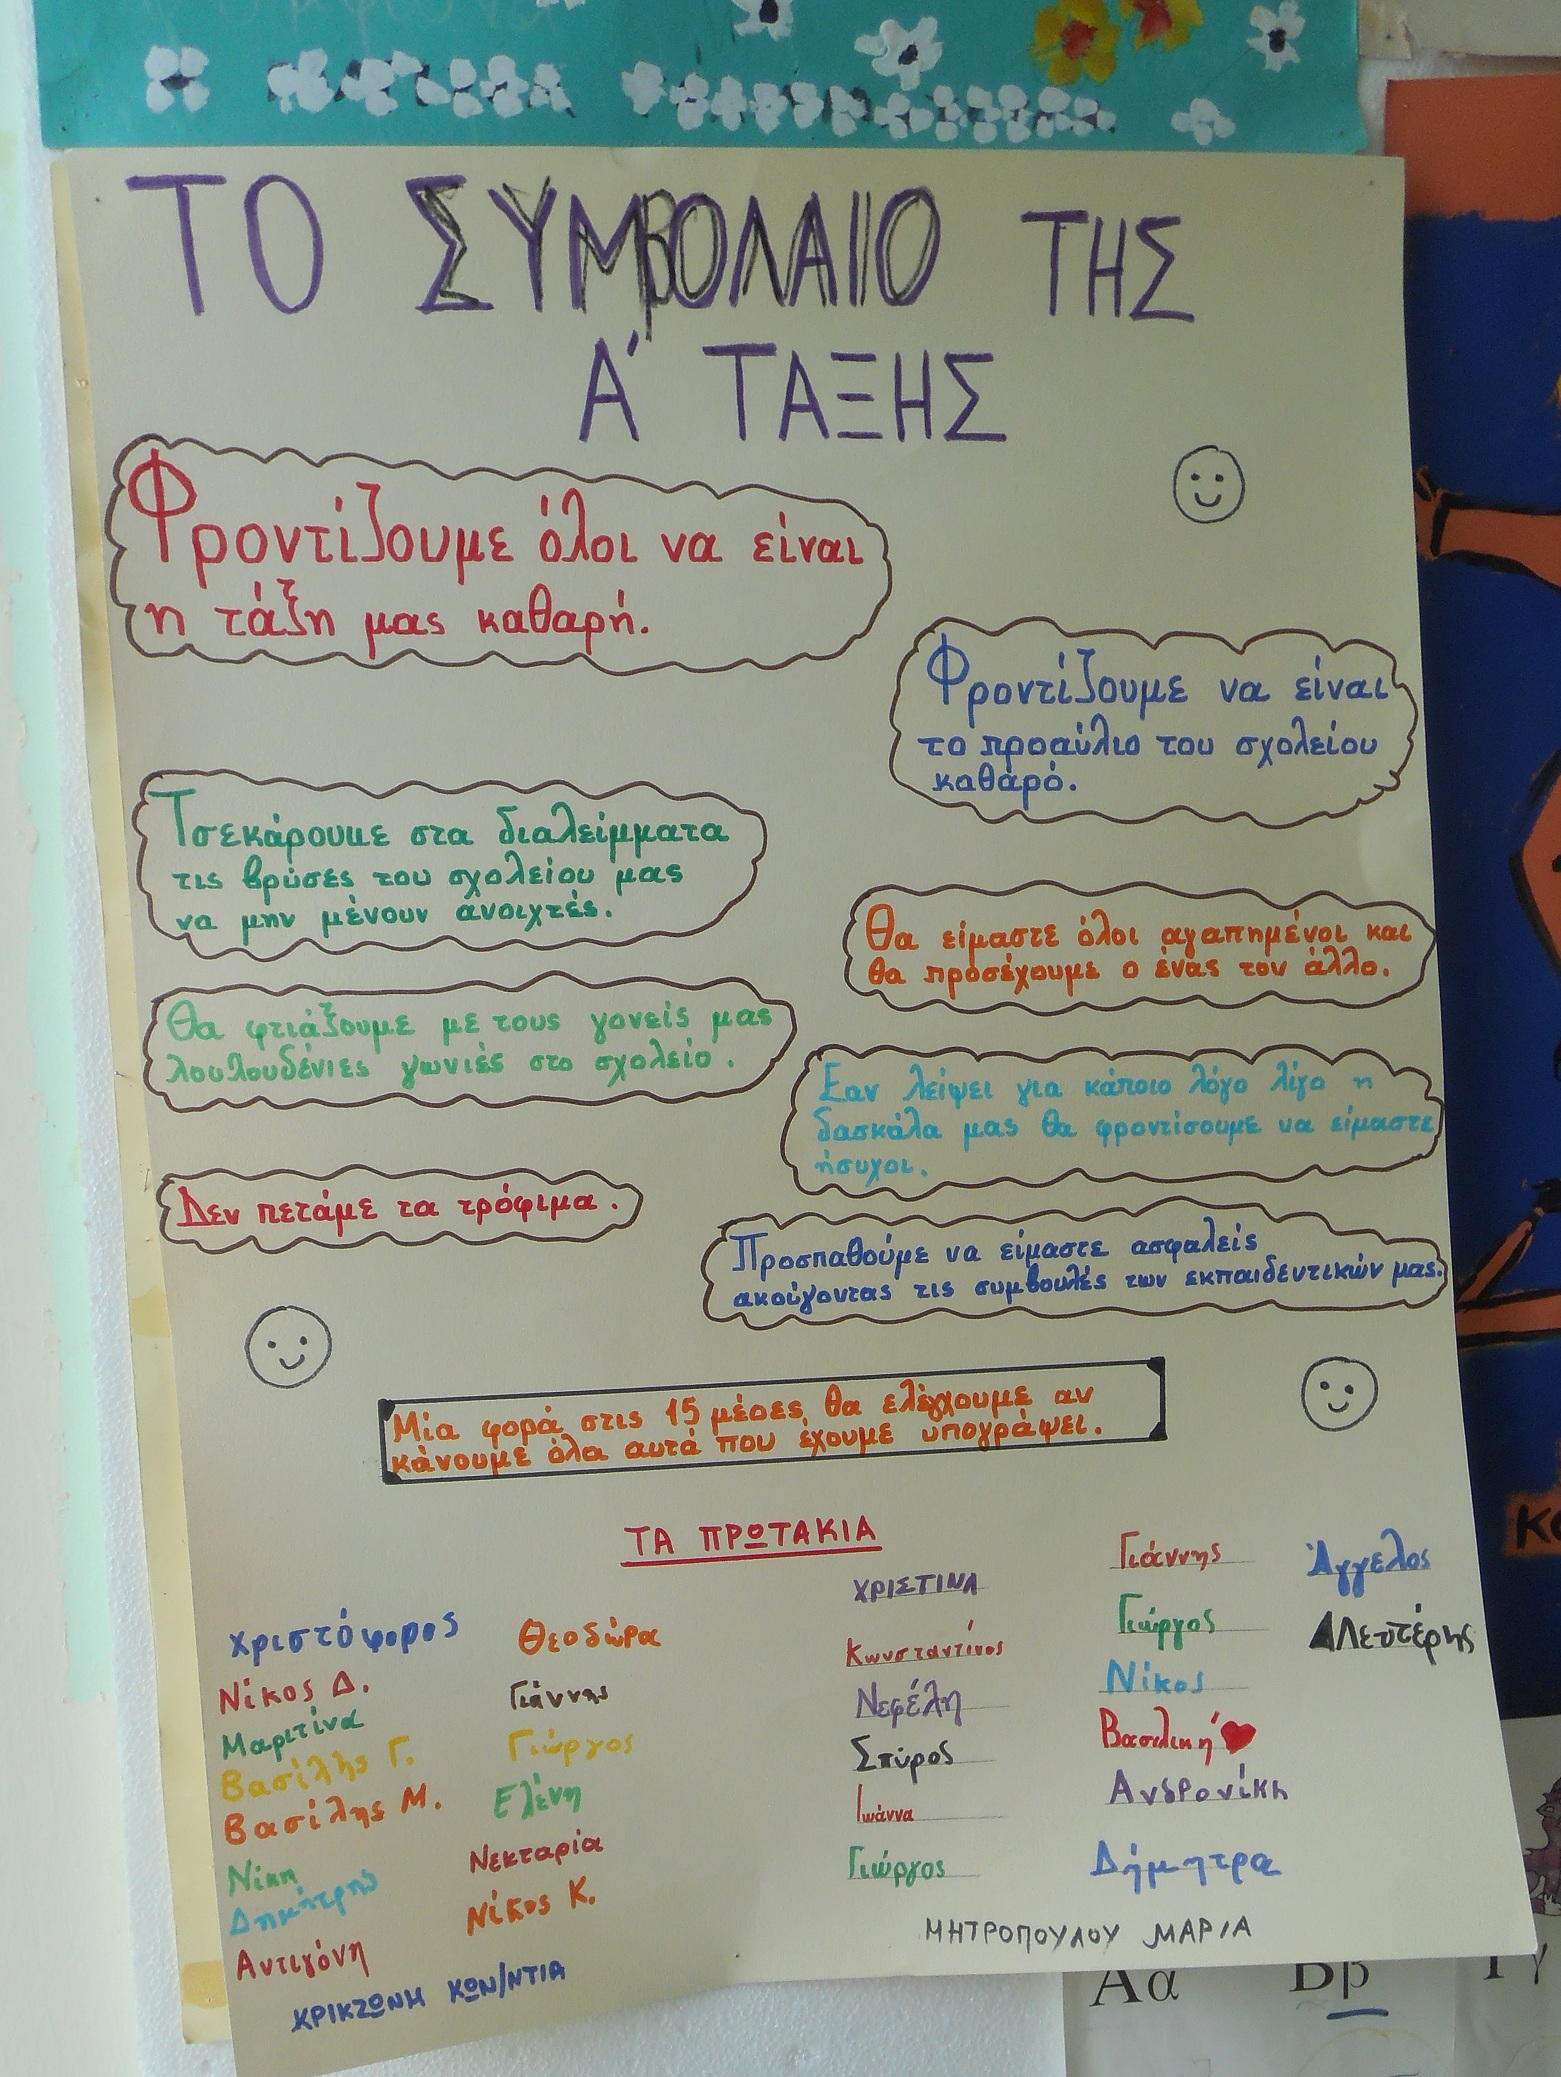 ΤΟ ΣΥΜΒΟΛΑΙΟ ΤΗΣ
Α' ΤΑΞΗΣ
Φροντίζουμε όλοι να είναι
η τάξη μας καθαρή.
Φροντίζουμε να είναι
το προαύλιο του σχολείου
καθαρό.
Τσεκάρουμε στα διαλείμματα
τις βρύσες του σχολείου μας
να μην μένουν ανοιχτές.
Θα είμαστε όλοι αγαπημένοι και
θα προσέχουμε ο ένας τον άλλο.
Θα φτιάξουμε με τους γονείς μας
λουλουδένιες γωνιές στο σχολείο.
Εαν λείψει για κάποιο λόγο λίγο η
δασκάλα μας θα φροντίσουμε να είμαστε
ήσυχοι.
Δεν πετάμε τα τρόφιμα.
Προσπαθούμε να είμαστε ασφαλείς
ακούγοντας τις συμβουλές των εκπαιδευτικών μας.
Μία φορά στις 15 μέρες θα ελέγχουμε αν
κάνουμε όλα αυτά που έχουμε υπογράψει.
ΤΑ ΠΡΩΤΑΚΙΑ
Χριστόφορος
Νίκος Δ.
Μαριτίνα
Βασίλης Γ.
Βασίλης Μ.
Νίκη
Δημήτρης
Αντιγόνη
ΚΡΙΚΖΩΝΗ ΚΩΝ/ΝΤΙΑ
Θεοδώρα
Γιάννης
Γιώργος
Ελένη
Νεκταρία
Νίκος Κ.
ΧΡΙΣΤΙΝΑ
Κωνσταντίνος
Νεφέλη
Σπύρος
Ιωάννα
Γιώργος
Γιάννης
Γιώργος
Νίκος
Βασιλική
Ανδρονίκη
Δήμητρα
ΜΗΤΡΟΠΟΥΛΟΥ ΜΑΡΙΑ
Άγγελος
Λευτέρης
Αα Ββ Γγ